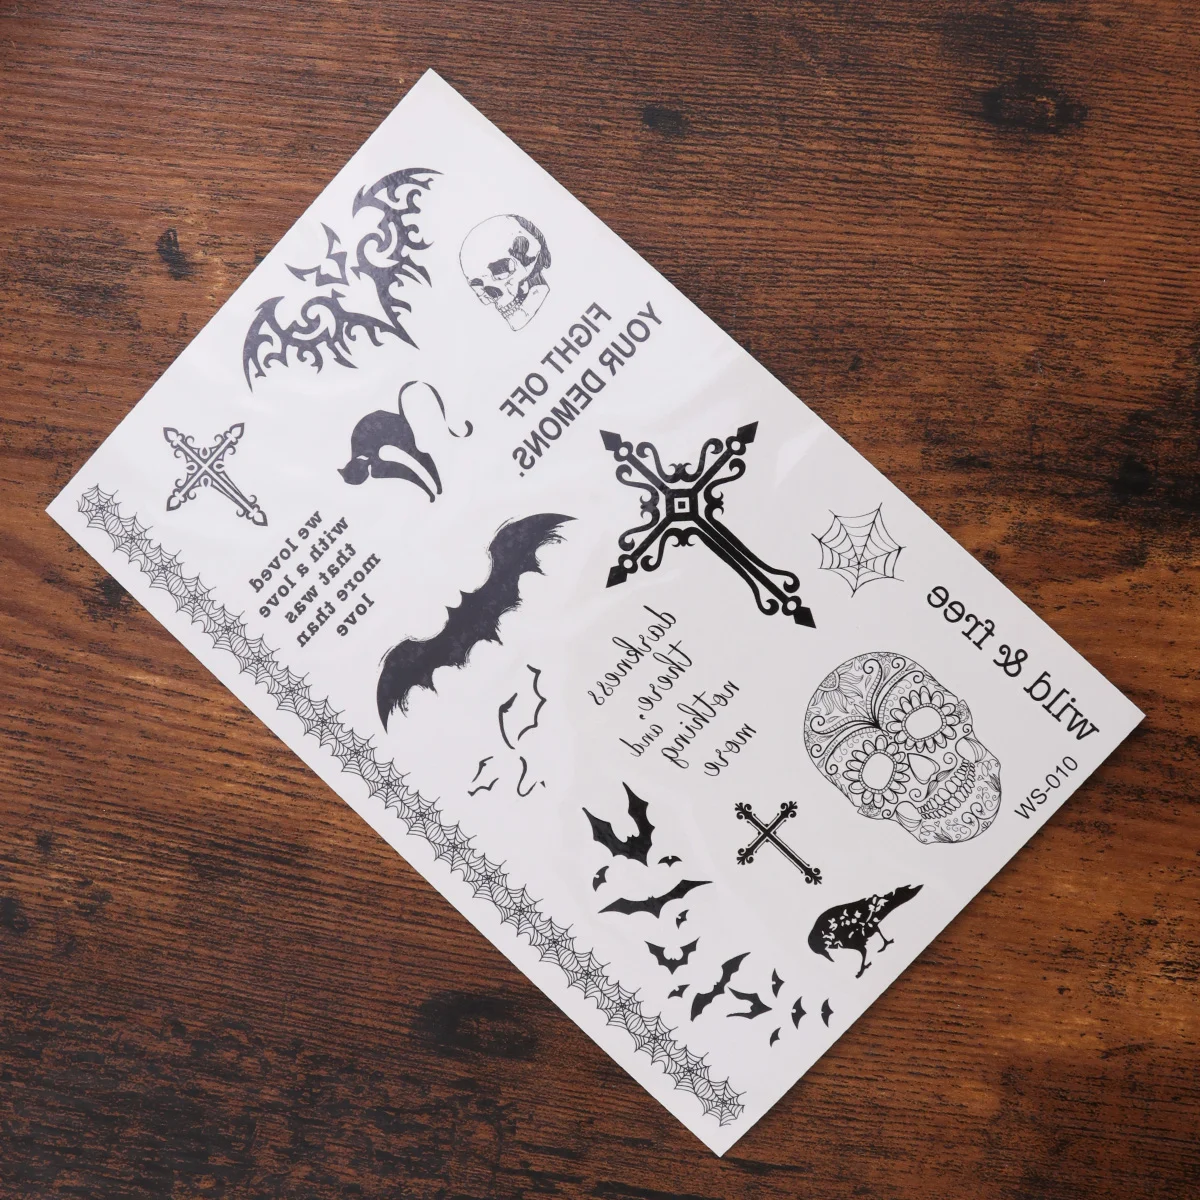 FIGHT OFF
YOUR DEMONS.
we loved
with a love
that was
more than
love
darkness
there, and
nothing
more
wild & free
WS-010